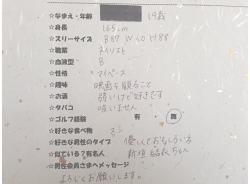 ☆なまえ・年齢 19歳
☆身長 165cm
☆スリーサイズ B87 W60 H88
☆職業 ネイリスト
☆血液型 B
☆性格 マイペース
☆趣味 映画を観ること
☆お酒 弱いけど好きです
☆タバコ 吸いません
☆ゴルフ経験 有 無
☆好きな食べ物 すし
☆好きな男性のタイプ 優しくておもしろい
☆似ている?有名人 新垣結衣ちゃん
☆男性会員さまへメッセージ
よろしくお願いします。